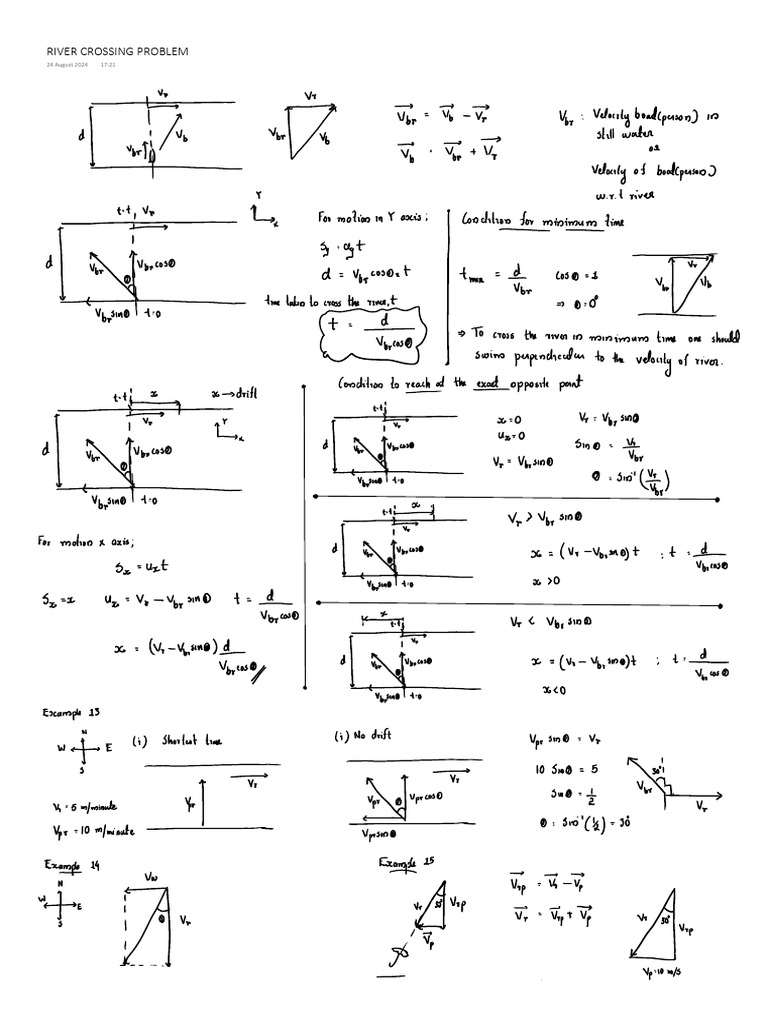 RIVER CROSSING PROBLEM
24 August 2024 17:21
Vr
d
Vbr
Vb
Vr
Vbr
Vb
Vbr = Vb - Vr
Vb = Vbr + Vr
Vbr : Velocity boat(person) in
still water
or
Velocity of boat(person)
w.r.t river
t=t Vr
Y
x
d
Vbr
Vbr cosθ
θ
Vbr sinθ t=0
For motion in Y axis;
Sy = uy t
d = Vbr cosθ × t
time taken to cross the river, t
t = d / Vbr cosθ
Condition for minimum time
tmin = d / Vbr cosθ = 1
⇒ θ = 0°
Vr
Vbr
Vb
⇒ To cross the river in minimum time one should
swim perpendicular to the velocity of river.
t=t x x→drift
Vr
Y
x
d
Vbr
Vbr cosθ
θ
Vbr sinθ t=0
For motion x axis;
Sx = ux t
Sx = x ux = Vr - Vbr sinθ t = d / Vbr cosθ
x = (Vr - Vbr sinθ) d / Vbr cosθ
Condition to reach at the exact opposite point
t=t
Vr
d
Vbr
Vbr cosθ
θ
Vbr sinθ t=0
x=0 Vr = Vbr sinθ
ux=0 Sinθ = Vr / Vbr
Vr = Vbr sinθ
θ = Sin⁻¹(Vr / Vbr)
t=t x
Vr
d
Vbr
Vbr cosθ
θ
Vbr sinθ t=0
Vr > Vbr sinθ
x = (Vr - Vbr sinθ) t ; t = d / Vbr cosθ
x >0
x
t=t
Vr
d
Vbr
Vbr cosθ
θ
Vbr sinθ t=0
Vr < Vbr sinθ
x = (Vr - Vbr sinθ) t ; t = d / Vbr cosθ
x<0
Example 13
N
W E
S
(i) Shortest time
Vr
Vr = 5 m/minute
Vpr = 10 m/minute
(i) No drift
Vr
Vpr
θ
Vpr cosθ
Vpr sinθ
Vpr sinθ = Vr
10 Sinθ = 5
Sinθ = 1/2
θ = Sin⁻¹(1/2) = 30°
30°
Vbr
Vr
Example 14
N
W E
S
Vw
Vr
θ
Example 15
Vr
30°
Vrp
Vp
Vrp = Vr - Vp
Vr = Vrp + Vp
Vr
30°
Vrp
Vp=10 m/s